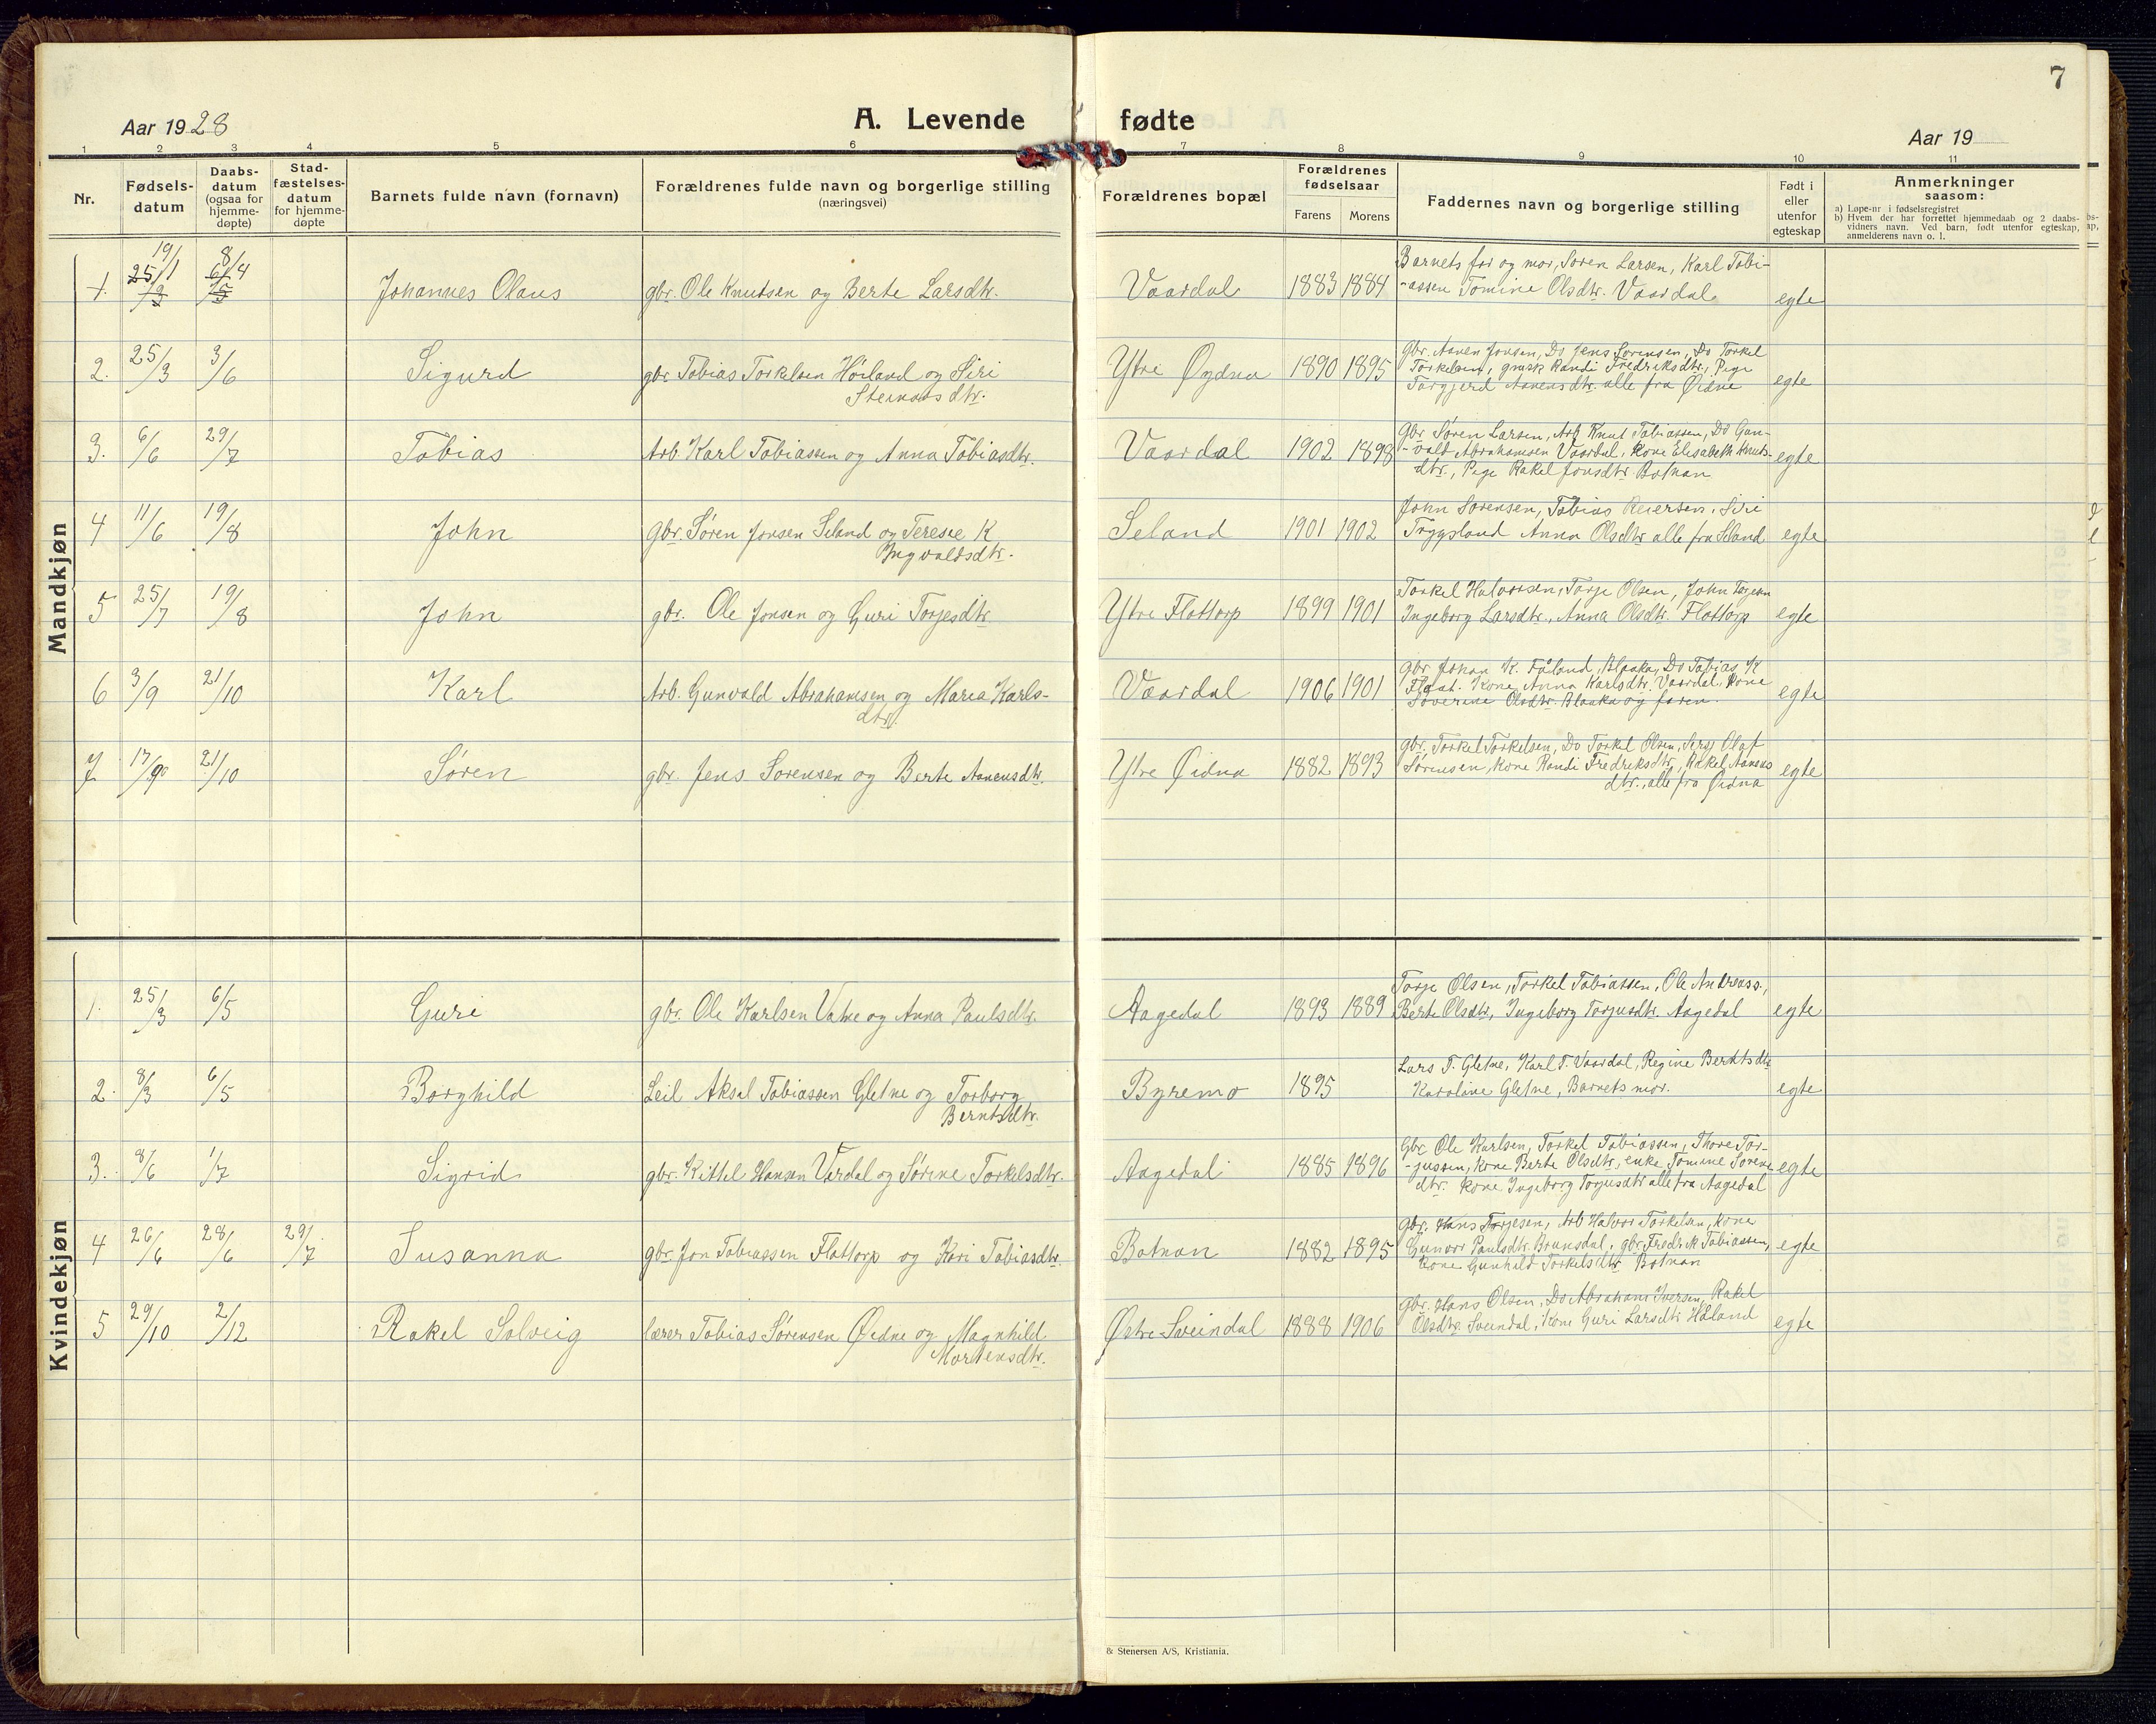 7
Aar 1928
A. Levende fødte
Aar 19
1 2 3 4 5 6 7 8 9 10 11
Nr.
Fødsels-
datum
Daabs-
datum
(ogsaa for
hjemme-
døpte)
Stad-
fæstelses-
datum
for hjemme-
døpte
Barnets fulde navn (fornavn)
Forældrenes fulde navn og borgerlige stilling
(næringsvei)
Forældrenes bopæl
Forældrenes
fødselsaar
Farens Morens
Faddernes navn og borgerlige stilling
Født i
eller
utenfor
egteskap
Anmerkninger
saasom:
a) Løpe-nr i fødselsregistret
b) Hvem der har forrettet hjemmedaab og 2 daabs-
vidners navn. Ved barn, født utenfor egteskap,
anmelderens navn o. l.
Mandkjøn
1. 19/1 8/4 Johannes Olaus gbr. Ole Knutsen og Berte Larsdtr. Vaardal 1883 1884 Barnets far og mor, Søren Larsen, Karl Tobi-
-assen Tomine Olsdtr. Vaardal egte
2. 25/3 3/6 Sigurd gbr Tobias Torkelsen Høiland og Siri
Steinarsdtr.
Ytre Øydna 1890 1895 Gbr. Aanen Jonsen, Do Jens Sørensen, Do Torkel
Torkelsen, gmsk Randi Fredriksdtr., Pige
Torgjerd Aanensdtr. alle fra Øidne egte
3. 6/6 29/7 Tobias Arb. Karl Tobiassen og Anna Tobiasdtr. Vaardal 1902 1898 Gbr Søren Larsen, Arb Knut Tobiassen, Do Gun-
-vald Abrahamsen Vaardal, Kone Elisabeth Knuts-
dtr., Pige Rakel Jonsdtr Botnan egte
4 11/6 19/8 John Gbr. Søren Jonsen Seland og Terese K
Ingvaldsdtr.
Seland 1901 1902 John Sørensen, Tobias Reiersen, Siri
Tryggsland Anna Olsdtr alle fra Seland egte
5 25/7 19/8 John gbr. Ole Jonsen og Guri Torjesdtr. Ytre Flottorp 1899 1901 Torkel Halvorsen, Torje Olsen, John Torjesen
Ingeborg Larsdtr., Anna Olsdtr. Flottorp egte
6 3/9 21/10 Karl Arb. Gunvald Abrahamsen og Maria Karls-
dtr.
Vaardal 1906 1901 Gbr Johan K. Føland, Blaaka, Do Tobias K
Flaat. Kone Anna Karlsdtr. Vaardal, Kone
Severine Olsdtr. Blaaka og faren. egte
7 17/9 21/10 Søren gbr. Jens Sørensen og Berte Aanensdtr. Ytre Øidna 1882 1893 Gbr. Torkel Torkelsen, Do Torkel Olsen, Olaf
Sørensen, Kone Randi Fredriksdtr., Rakel Aanens
dtr., alle fra Øidna egte
Kvindekjøn
1. 25/3 6/5 Guri gbr. Ole Karlsen Vatne og Anna Paulsdtr. Aagedal 1893 1889 Torje Olsen, Torkel Tobiassen, Ole Andreass.,
Berte Olsdtr, Ingeborg Torjusdtr. Aagedal egte
2. 8/3 6/5 Borghild Leil Aksel Tobiassen Gletne og Torborg
Berntsdtr.
Byremo 1895 Lars T. Gletne, Karl T. Vaardal, Regine Berntsdtr
Karoline Gletne, Barnets mor. egte
3. 8/6 1/7 Sigrid gbr. Kittel Hansen Vårdal og Sørine Torkelsdtr. Aagedal 1885 1896 Gbr Ole Karlsen, Torkel Tobiassen, Thore Tor-
-jussen, Kone Berte Olsdtr, enke Tomine Sørens
dtr. Kone Ingeborg Torjusdtr alle fra Aagedal egte
4 26/6 28/6 29/7 Susanna gbr. Jon Tobiassen Flottorp og Kari Tobiasdtr. Botnan 1882 1895 Gbr. Hans Torjesen, Arb Halvor Torkelsen, Kone
Gunvor Paulsdtr. Brunsdal, gbr Fredrik Tobiassen,
Kone Gunhild Torkelsdtr Botnan egte
5 29/10 2/12 Rakel Solveig lærer Tobias Sørensen Øidne og Magnhild
Mortensdtr.
Østre Sveindal 1888 1906 Gbr. Hans Olsen, Do Abraham Iversen, Rakel
Olsdtr. Sveindal, Kone Guri Larsdtr Håland egte
& Stenersen A/S, Kristiania.